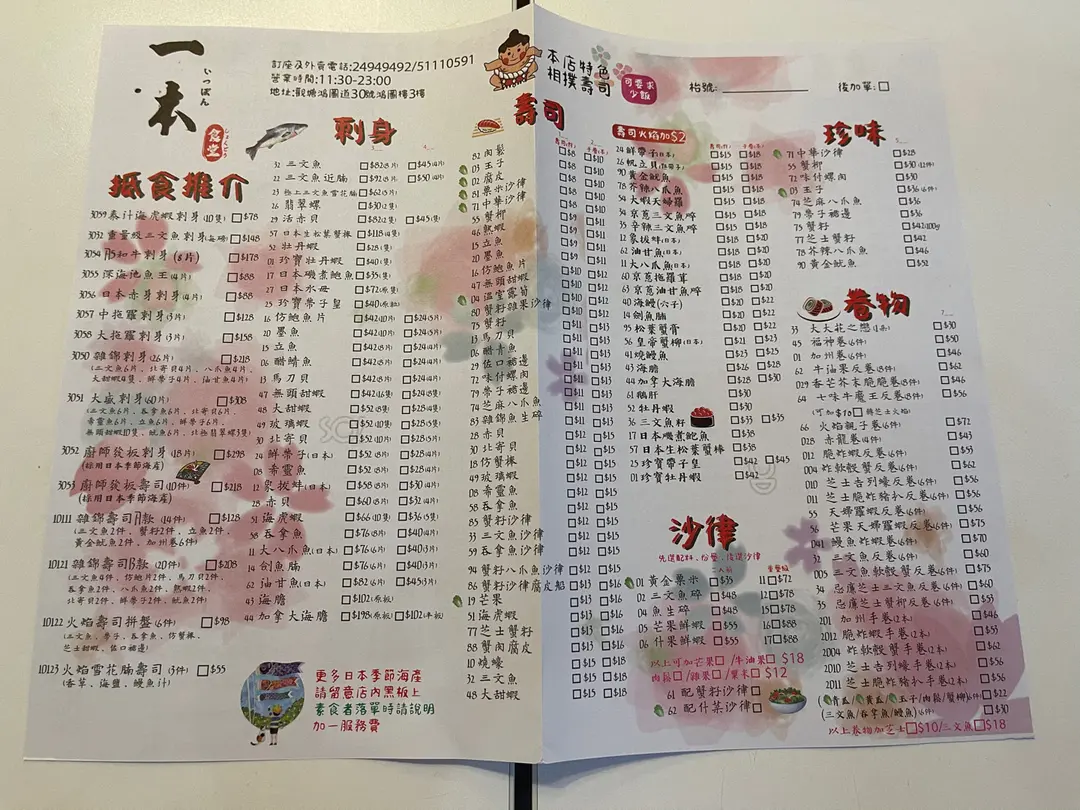 一本
いっぽん
食堂
しょくどう
訂座及外賣電話:24949492/51110591
營業時間:11:30-23:00
地址:觀塘鴻圖道30號鴻圖樓3樓
本店特色
相撲壽司
可要求
少飯
枱號:
後加單:
抵食推介
3059 泰汁海虎蝦刺身(10隻) $78
3052 重量級三文魚刺身 $148
3054 和牛刺身(8片) $178
3055 深海池魚王(4片) $88
3056 日本赤身刺身(4片) $88
3057 中拖羅刺身(3片) $128
3058 大拖羅刺身(3片) $158
3050 雜錦刺身(26片) $218
(三文魚6片、北寄貝4片、八爪魚4片、
大甜蝦4隻、鮮帶子4片、油甘魚4片)
3051 大盛刺身(60片) $308
(三文魚6片、吞拿魚6片、北寄貝6片、
希靈魚6片、立魚6片、鮮帶子6片、
無頭甜蝦10隻、魷魚6片、北極翡翠螺3隻)
3052 廚師發板刺身(18片) $298
(採用日本季節海產)
3053 廚師發板壽司(10件) $218
(採用日本季節海產)
10111 雜錦壽司A款(14件) $128
(三文魚2件、蟹籽2件、立魚2件、
黃金魷魚2件、加州卷6件)
10121 雜錦壽司B款(20件) $208
(三文魚4件、仿鮑片2件、馬刀貝2件、
吞拿魚2件、八爪魚2件、熟蝦2件、
北寄貝2件、鮮帶子2件、魷魚2件)
10122 火焰壽司拼盤(6件) $98
(三文魚、帶子、吞拿魚、仿蟹棒、
芝士甜蝦、佐口裙邊)
10123 火焰雪花腩壽司(3件) $55
(香草、海鹽、鰻魚汁)
刺身
32 三文魚 $82(8片) $45(4片)
22 三文魚近腩 $92(8片) $50(4片)
23 極上三文魚雪花腩 $62(5片)
26 翡翠螺 $30(2隻)
29 活赤貝 $82(2隻) $45(1隻)
57 日本生松葉蟹棒 $118(4隻)
52 牡丹蝦 $28(1隻)
01 珍寶牡丹蝦 $40(1隻)
17 日本磯煮鮑魚 $35(1隻)
27 日本水母 $72(原隻)
25 珍寶帶子皇 $40(原隻)
16 仿鮑魚片 $42(10片) $24(5片)
20 墨魚 $42(10片) $24(5片)
15 立魚 $42(8片) $24(4片)
06 醋鯖魚 $42(8片) $24(4片)
13 馬刀貝 $42(8片) $24(4片)
47 無頭甜蝦 $42(10隻) $24(5隻)
48 大甜蝦 $52(8隻) $28(4隻)
49 玻璃蝦 $52(10隻) $28(5隻)
30 北寄貝 $52(10片) $28(5片)
24 鮮帶子(日本) $52(8片) $28(4片)
08 希靈魚 $52(8片) $28(4片)
12 象拔蚌(日本) $58(8片) $30(4片)
28 赤貝 $60(8片) $32(4片)
51 海虎蝦 $66(10隻) $36(5隻)
58 吞拿魚 $76(8片) $40(4片)
11 大八爪魚(日本) $76(6片) $40(3片)
14 劍魚腩 $76(6片) $40(3片)
62 油甘魚(日本) $82(6片) $45(3片)
43 海膽 $102(原板)
44 加拿大海膽 $198(原板) $102(半板)
更多日本季節海產
請留意店內黑板上
素食者落單時請說明
加一服務費
壽司
82 肉鬆 $8 $10
03 玉子 $8 $10
02 腐皮 $8 $10
81 粟米沙律 $8 $10
71 中華沙律 $8 $10
55 蟹柳
46 熟蝦
15 立魚
20 墨魚
16 仿鮑魚片
47 無頭甜蝦
04 溫室露筍
80 蟹籽雜果沙律
75 蟹籽
13 馬刀貝
06 醋青魚
29 佐口裙邊
72 味付螺肉
79 帶子裙邊
74 芝麻八爪魚
83 雜錦魚生碎
28 赤貝
30 北寄貝
18 仿蟹棒
49 玻璃蝦
08 希靈魚
58 吞拿魚
85 蟹籽沙律
33 三文魚沙律
59 吞拿魚沙律
94 蟹籽八爪魚沙律 $12 $15
86 蟹籽沙律腐皮船 $12 $15
19 芒果 $13 $16
51 海虎蝦 $13 $16
77 芝士蟹籽 $13 $16
88 蟹肉腐皮 $13 $16
10 燒蠔 $15 $18
32 三文魚 $15 $18
48 大甜蝦 $15 $18
壽司火焰加$2
24 鮮帶子(日本) $15 $18
26 帆立貝 $15 $18
90 黃金魷魚 $15 $18
78 芥辣八爪魚 $15 $18
54 大蝦天婦羅 $15 $18
34 京蔥三文魚碎 $15 $18
35 辛辣三文魚碎 $15 $18
12 象拔蚌(日本) $18 $20
62 油甘魚(日本) $18 $20
11 大八爪魚(日本) $18 $20
60 京蔥拖羅茸 $18 $20
63 京蔥油甘魚碎 $18 $20
40 海鰻(穴子) $20 $22
14 劍魚腩 $20 $22
95 松葉蟹膏 $20 $22
56 皇帝蟹柳(日本) $21 $23
41 燒鰻魚 $23 $25
43 海膽 $26 $28
44 加拿大海膽 $28 $30
61 鵝肝 $30
52 牡丹蝦 $30
36 三文魚籽 $33 $35
17 日本磯煮鮑魚 $38
57 日本生松葉蟹棒 $38
25 珍寶帶子皇 $42 $45
01 珍寶牡丹蝦 $42
沙律
先選配料、份量、後選沙律
二人前
01 黃金粟米 $35 11 $72
02 三文魚碎 $48 12 $78
04 魚生碎 $48 15 $78
05 芒果鮮蝦 $55 16 $88
06 什果鮮蝦 $55 17 $88
以上可加芒果 /牛油果 $18
肉鬆 /雜果 /粟米 $12
61 配蟹籽沙律
62 配什菜沙律
珍味
71 中華沙律 $28
55 蟹柳 $30(12件)
72 味付螺肉 $30
03 玉子 $36(6件)
74 芝麻八爪魚 $36
79 帶子裙邊 $36
75 蟹籽 $42(100g)
77 芝士蟹籽 $42
78 芥辣八爪魚 $46
90 黃金魷魚 $52
卷物
33 大大花之戀(1条) $30
45 福神卷(6件) $50
01 加州卷(6件) $46
62 牛油果反卷(8件) $62
D29 香芒芥末脆脆卷(8件) $46
64 七味牛魔王反卷(8件) $56
(可加$10轉芝士火焰)
66 火焰親子卷(6件) $72
028 赤龍卷(4件) $43
012 脆脆蝦反卷(6件) $53
004 炸軟殼蟹反卷(6件) $62
010 芝士吉列蠔反卷(6件) $56
011 芝士脆炸豬扒反卷(6件) $56
55 天婦羅蝦反卷(6件) $56
56 芒果天婦羅蝦反卷(6件) $75
041 鰻魚炸蝦卷(6件) $70
32 三文魚反卷(6件) $60
005 三文魚軟殼蟹反卷(6件) $75
34 忌廉芝士三文魚反卷(6件) $60
35 忌廉芝士蟹柳反卷(6件) $55
201 加州手卷(2本) $46
2012 脆脆蝦手卷(2本) $53
2004 炸軟殼蟹手卷(2本) $62
2010 芝士吉列蠔手卷(2本) $56
2011 芝士脆炸豬扒手卷(2本) $56
(青瓜/黃瓜/玉子/肉鬆/蟹柳)6件 $22
(三文魚/吞拿魚/鰻魚)6件 $30
以上卷物加芝士$10/三文魚$18